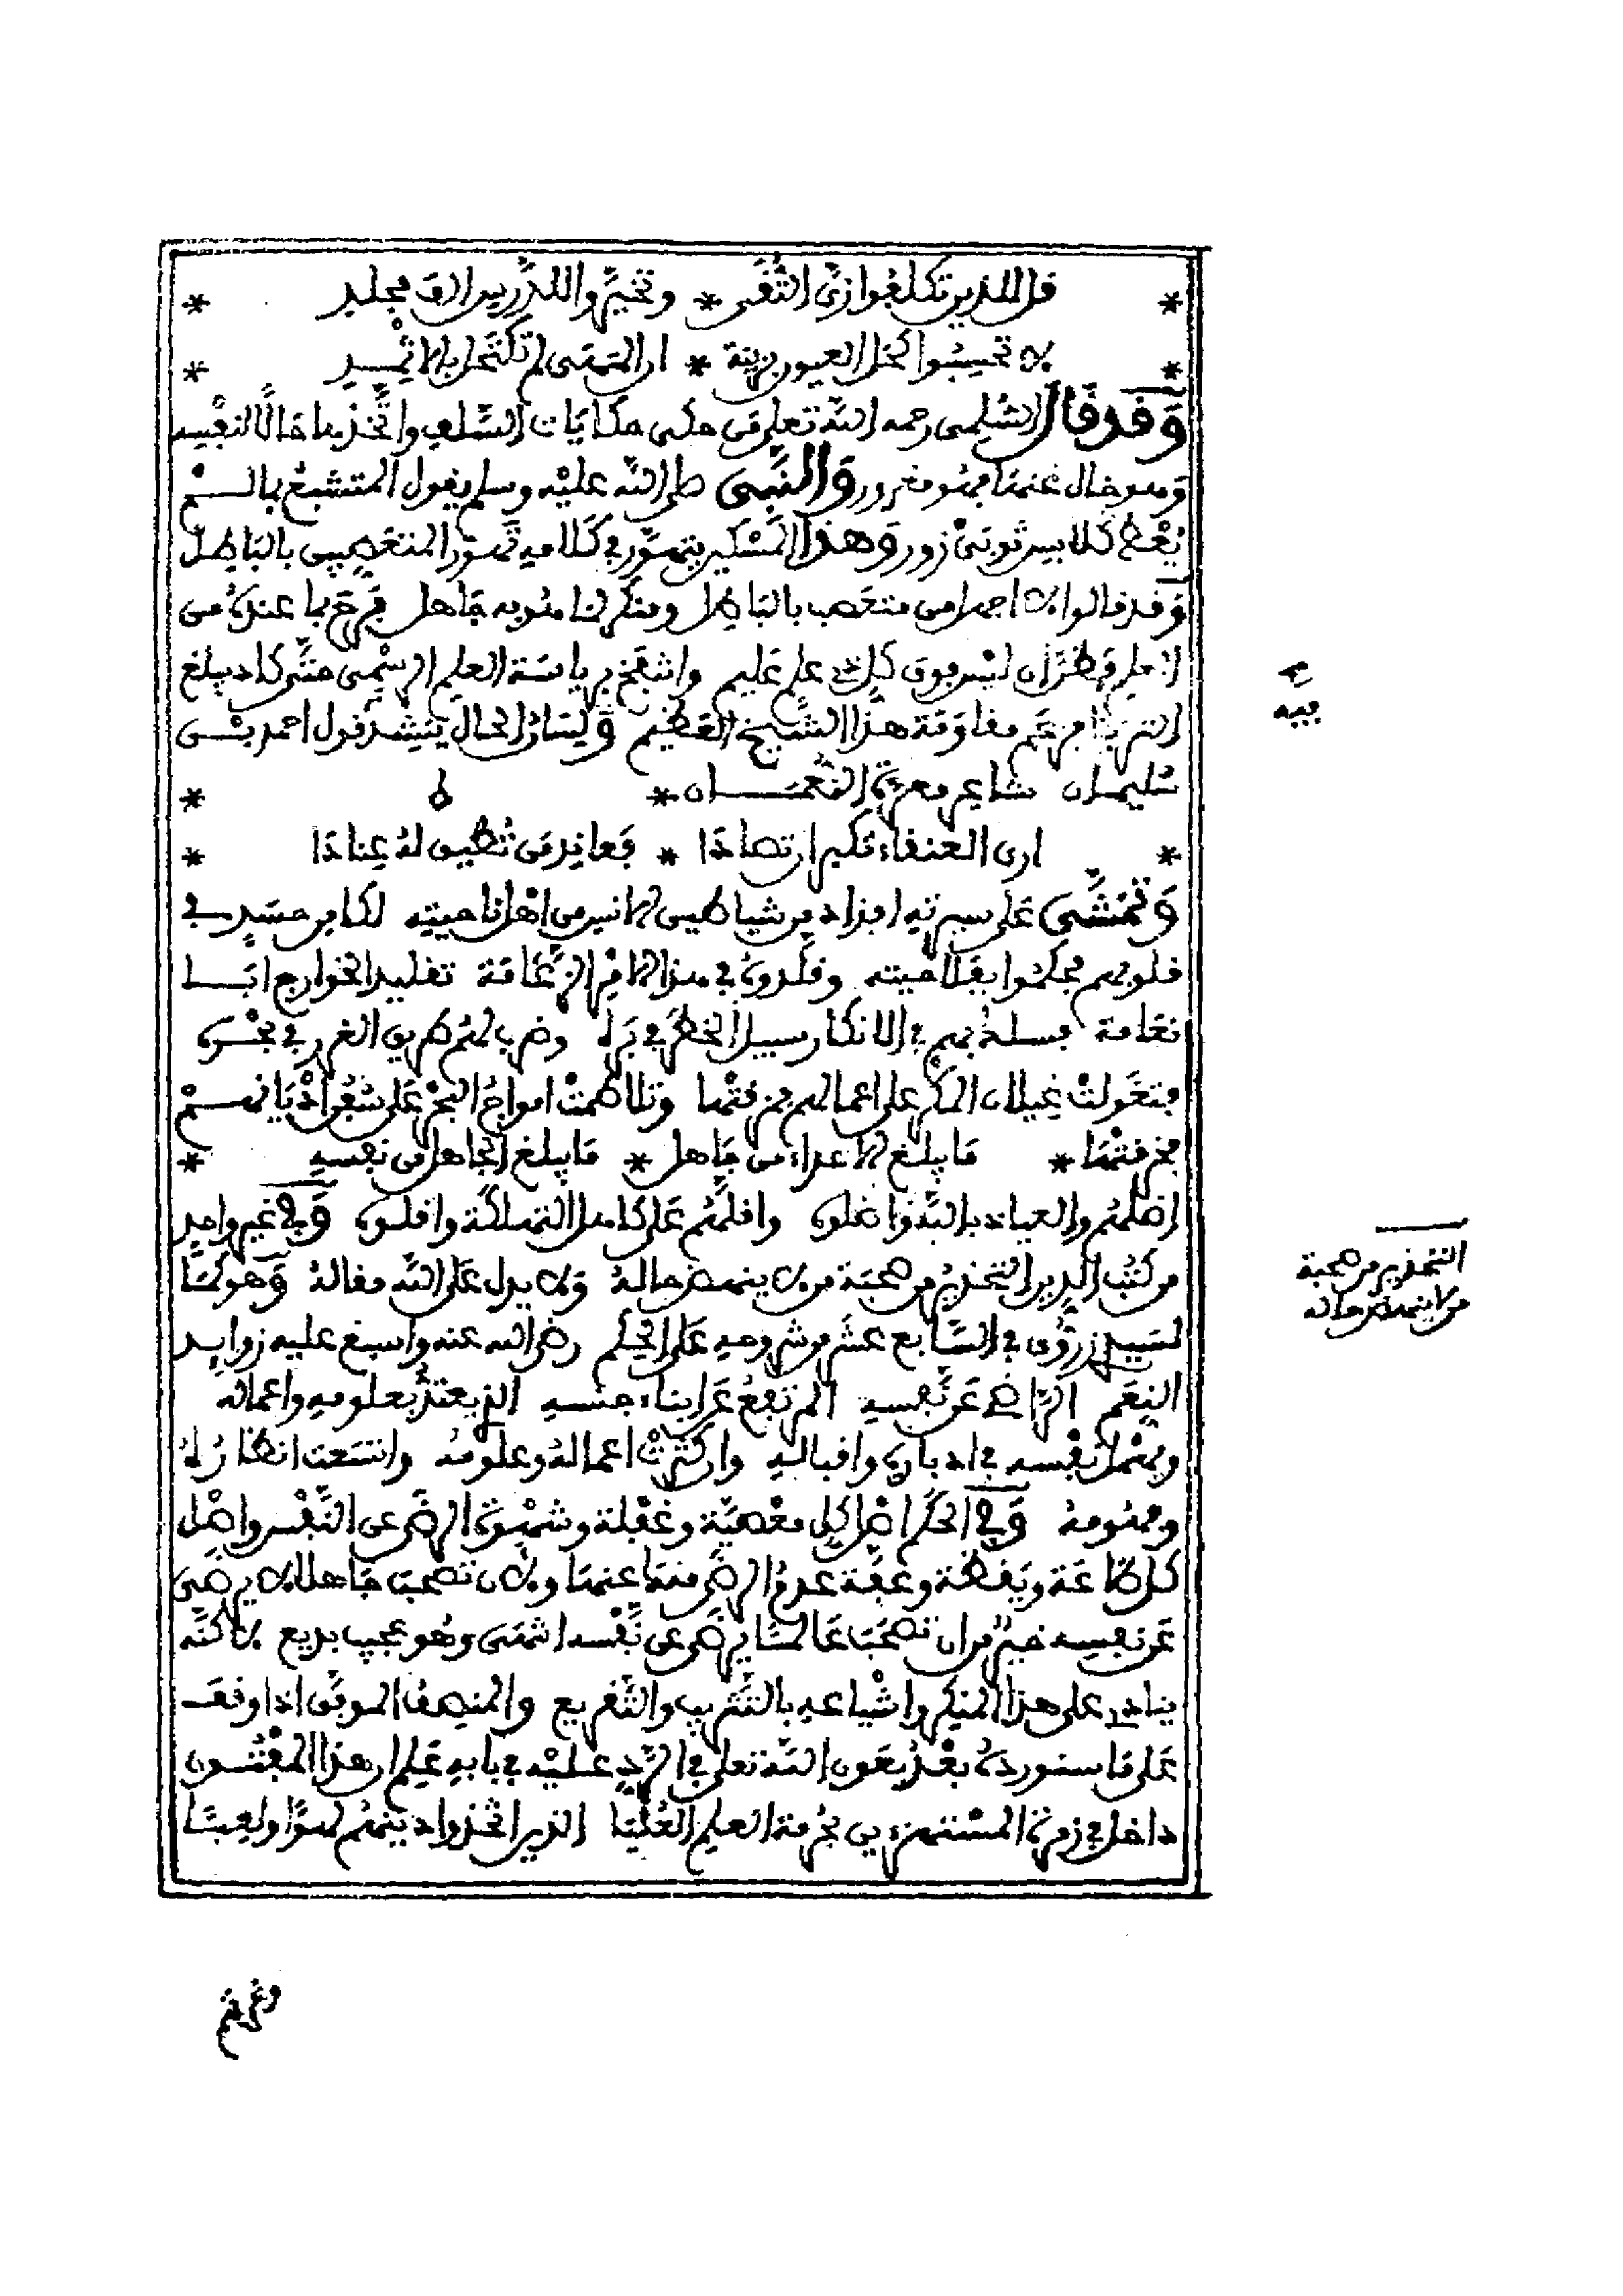 * قل للذين تكلفوا زي التقى * وتخيروا للدرس الف مجلد *
* لا تحسبوا كحل العيون بزينة * ان المهى لم تكتحل بالاثمد *
وَقد قال السُّلمي رحمه الله تعلى من حكى حكايات السَّلف واتَّخذها حَالًا لنفْسه
وهو خال عنها فهو مغرور وَالنَّبيء صلى الله عليْه وسلم يقول المتشبعُ بما لم
يُعْطَ كلابس ثوبَيْ زور وَهذا المسْكين يتهوّر في كلامه تهوّر المتعصبين بالبَاطل
وَقد قالوا لا اجهل من متعصب بالبَاطل ومنكر لما هُو به جَاهل فَرِحَ بما عندهُ من
العلم وظَنَّ ان ليْس فوق كل ذي علم عَليم وانتفخ برياسَة العلم الرسْمي حتَّى كاد يبلغ
الثريا من عَدم مقاوَمَة هذا الشيخ العَظيم وَلِسَانُ الحال يَنشِدُ قول احمد بن
سُليمان شاعر معرة النُّعمَان *
* ارى العنقاء تكبر ان تصادَا * فعاند مَن تُطيق لهُ عنادَا *
وَتمشَّى عَلى سيرته افراد من شياطين الانس من اهْل ناحيته لكامن حسَدٍ في
قلوبهم فحكمُوا بفَلاحيته وقلَّدوهُ في هذا الامْر تقليد الخوارج ابَا
نعَامة فسلك بهم في الانكار سبيل الخطَر في بَرِّه وضرب لهُم طريق الغرر في بحْره
فتغَولتْ غيلان المكْر على اعمالهم فمزقتْها وتلاطمتْ امواجُ البحْر عَلى سُفُن اذْيَانهمْ
فخرقتْها * مَا يبلغ الاعداء من جَاهل * مَا يبلغ الجاهل من نفسه *
اضلهُم والعياذ بالله فَاضلوه واقلَّهُم عَلى كاهل التهلكَة واقلوه وَفي غير وَاحد
من كتُب الدين التحذيرُ من صحبَة من لا ينهض حَالهُ وَلا يدل عَلى الله مقالهُ وَهو كمَا
لسَيدي زرّوق في السَّابع عشَر من شروحه عَلى الحكم رضي الله عنه واسبغ عليه زوايد
النِعَم الرَّاضي عَن نَفسه المرتفعُ عَن ابناء جنسه الذي يعتدُّ بعلومه واعماله
ويهْمل نفْسه في ادباره واقباله وان كثرتْ اعمالهُ وعلومُه واتسَعت انظارُهُ
وفهُومهُ وَفي الحكَم اصْل كل معْصيَة وغفْلة وشهْوة الرضَى عن النَّفْس واصْل
كل طَاعَة ويَقظَة وعفّة عدمُ الرضَى منكَ عنهَا ولان تصْحَبَ جَاهلا لا يرضَى
عَن نفسِه خيْرٌ من ان تصْحَبَ عَالمًا يرضَى عن نَفْسه انتهى وهُو عجيب بديع لاكنَّه
ينادي على هذا المنكِر واشْياعه بالتثريب والتَّقريع والمنصفُ الموفَّق اذا وقفَ
عَلى مَا سنوردهُ بعْدُ بعَون الله تعلى في الرَّدِ عليْه في بابه عَلِم ان هذا المفْتُون
داخل في زمرة المسْتهزءين بحُرمَة العلم العُلْيَا الذين اتَّخذوا دينَهُم لهوًا ولعبًا
فيه
التحذير من صحبة
من لا ينهض حاله
وغرتهم